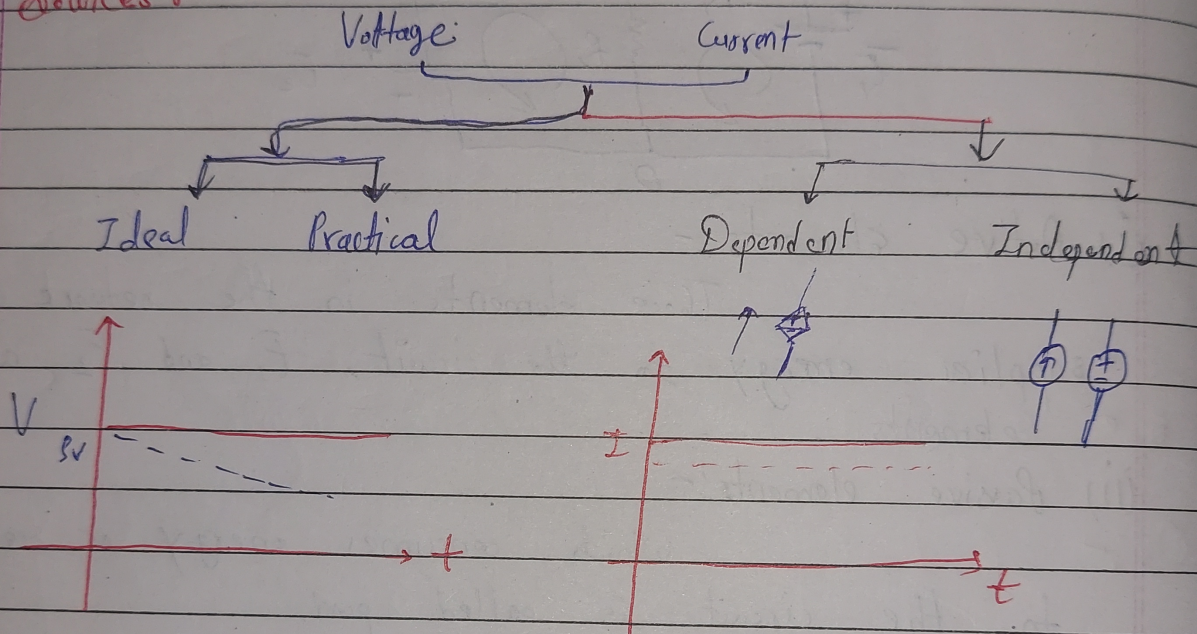 Sources
Voltage Current
Ideal Practical Dependent Independent
V
5V
I
t
t